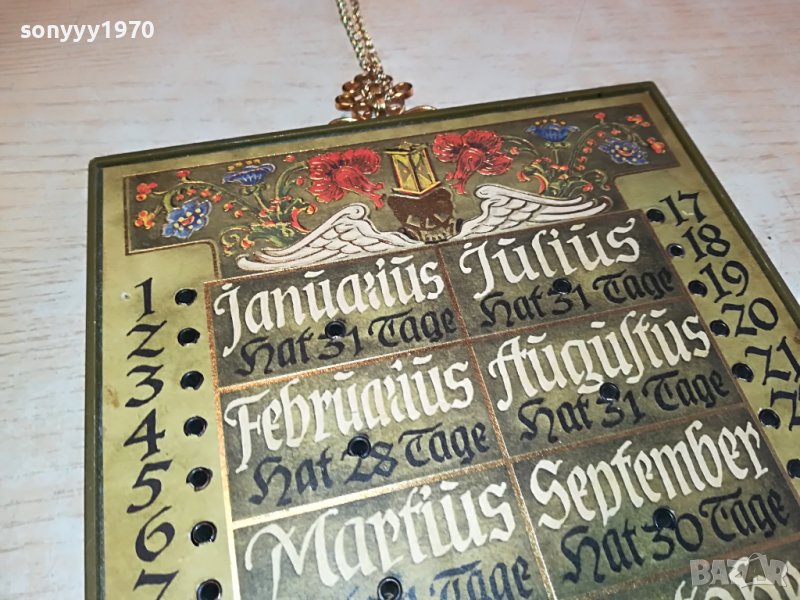 sonyyy1970
1
2
3
4
5
6
7
Januarius
Hat 31 Tage
Februarius
Hat 28 Tage
Martius
Tage
Julius
Hat 31 Tage
Auguſtus
Hat 31 Tage
September
Hat 30 Tage
17
18
19
20
21
BAZAR